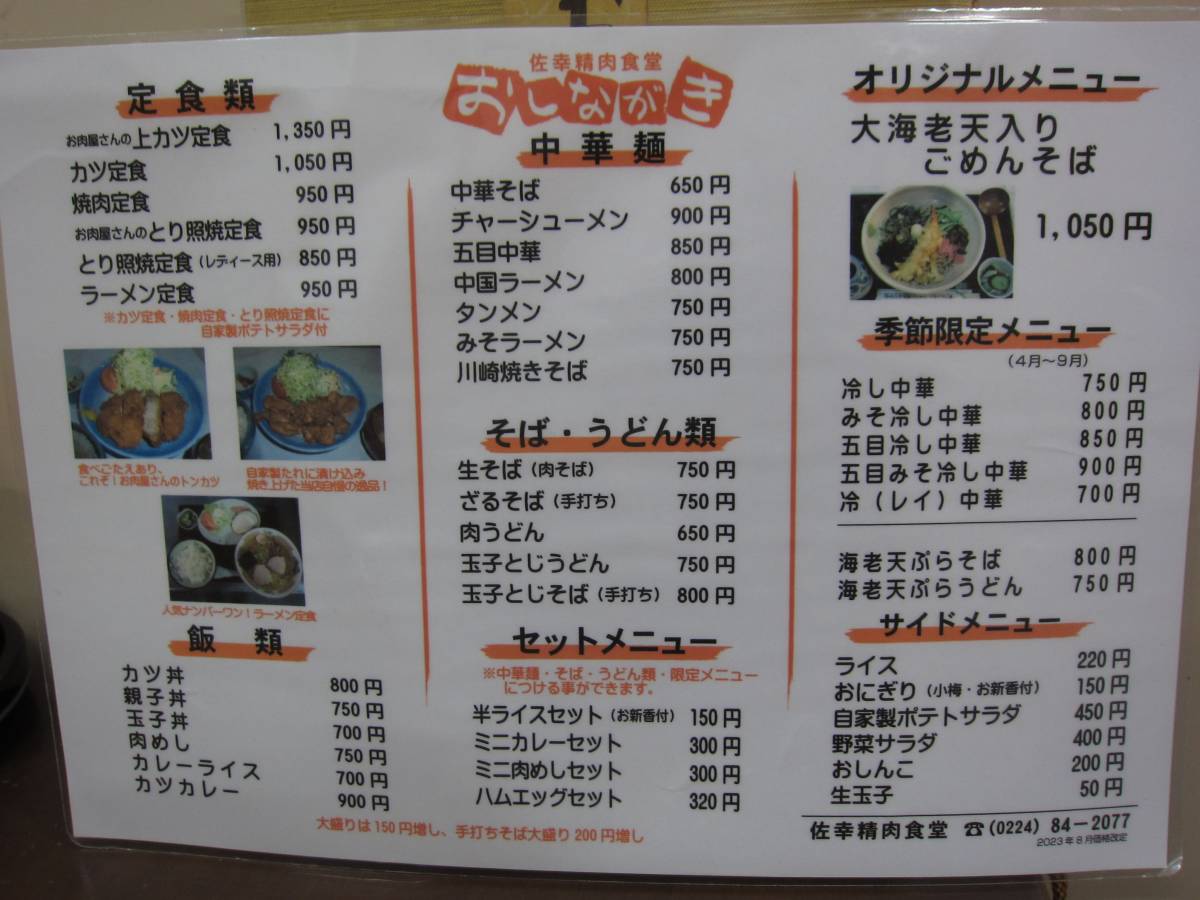 佐幸精肉食堂
おしながき
定食類
お肉屋さんの上カツ定食 1,350円
カツ定食 1,050円
焼肉定食 950円
お肉屋さんのとり照焼定食 950円
とり照焼定食（レディース用） 850円
ラーメン定食 950円
※カツ定食・焼肉定食・とり照焼定食に
自家製ポテトサラダ付
食べごたえあり、
これぞ！お肉屋さんのトンカツ
自家製たれに漬け込み
焼き上げた当店自慢の逸品！
人気ナンバーワン！ラーメン定食
飯類
カツ丼 800円
親子丼 750円
玉子丼 700円
肉めし 750円
カレーライス 700円
カツカレー 900円
中華麺
中華そば 650円
チャーシューメン 900円
五目中華 850円
中国ラーメン 800円
タンメン 750円
みそラーメン 750円
川崎焼きそば 750円
そば・うどん類
生そば（肉そば） 750円
ざるそば（手打ち） 750円
肉うどん 650円
玉子とじうどん 750円
玉子とじそば（手打ち） 800円
セットメニュー
※中華麺・そば・うどん類・限定メニュー
につける事ができます。
半ライスセット（お新香付） 150円
ミニカレーセット 300円
ミニ肉めしセット 300円
ハムエッグセット 320円
大盛りは150円増し、手打ちそば大盛り200円増し
オリジナルメニュー
大海老天入り
ごめんそば
1,050円
季節限定メニュー
（4月～9月）
冷し中華 750円
みそ冷し中華 800円
五目冷し中華 850円
五目みそ冷し中華 900円
冷（レイ）中華 700円
海老天ぷらそば 800円
海老天ぷらうどん 750円
サイドメニュー
ライス 220円
おにぎり（小梅・お新香付） 150円
自家製ポテトサラダ 450円
野菜サラダ 400円
おしんこ 200円
生玉子 50円
佐幸精肉食堂 ☎(0224) 84-2077
2023年8月価格改定